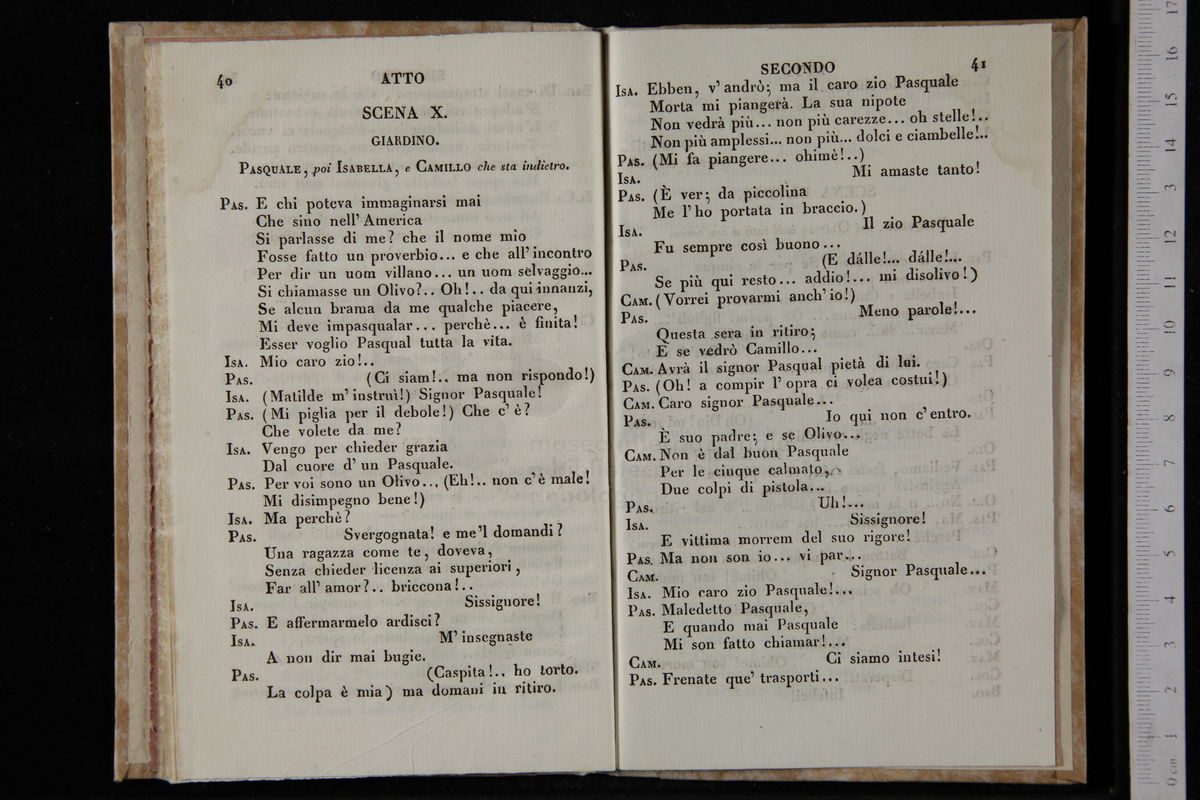 40
ATTO
SCENA X.
GIARDINO.
PASQUALE, poi ISABELLA, e CAMILLO che sta indietro.
PAS. E chi poteva immaginarsi mai
Che sino nell' America
Si parlasse di me? che il nome mio
Fosse fatto un proverbio... e che all' incontro
Per dir un uom villano... un uom selvaggio...
Si chiamasse un Olivo?.. Oh!.. da qui innanzi,
Se alcun brama da me qualche piacere,
Mi deve impasqualar... perchè... è finita!
Esser voglio Pasqual tutta la vita.
ISA. Mio caro zio!..
PAS. (Ci siam!.. ma non rispondo!)
ISA. (Matilde m' instruì!) Signor Pasquale!
PAS. (Mi piglia per il debole!) Che c' è?
Che volete da me?
ISA. Vengo per chieder grazia
Dal cuore d' un Pasquale.
PAS. Per voi sono un Olivo... (Eh!.. non c' è male!
Mi disimpegno bene!)
ISA. Ma perchè?
PAS. Svergognata! e me'l domandi?
Una ragazza come te, doveva,
Senza chieder licenza ai superiori,
Far all' amor?.. briccona!..
ISA. Sissignore!
PAS. E affermarmelo ardisci?
ISA. M' insegnaste
A non dir mai bugie.
PAS. (Caspita!.. ho torto.
La colpa è mia) ma domani in ritiro.
SECONDO
41
ISA. Ebben, v' andrò; ma il caro zio Pasquale
Morta mi piangerà. La sua nipote
Non vedrà più... non più carezze... oh stelle!..
Non più amplessi... non più... dolci e ciambelle!..
PAS. (Mi fa piangere... ohimè!..)
ISA. Mi amaste tanto!
PAS. (È ver; da piccolina
Me l' ho portata in braccio.)
ISA. Il zio Pasquale
Fu sempre così buono...
PAS. (E dálle!... dálle!...
Se più qui resto... addio!... mi disolivo!)
CAM. (Vorrei provarmi anch' io!)
PAS. Meno parole!...
Questa sera in ritiro;
E se vedrò Camillo...
CAM. Avrà il signor Pasqual pietà di lui.
PAS. (Oh! a compir l' opra ci volea costui!)
CAM. Caro signor Pasquale...
PAS. Io qui non c' entro.
È suo padre; e se Olivo...
CAM. Non è dal buon Pasquale
Per le cinque calmato,
Due colpi di pistola...
PAS. Uh!...
ISA. Sissignore!
E vittima morrem del suo rigore!
PAS. Ma non son io... vi par...
CAM. Signor Pasquale...
ISA. Mio caro zio Pasquale!...
PAS. Maledetto Pasquale,
E quando mai Pasquale
Mi son fatto chiamar!...
CAM. Ci siamo intesi!
PAS. Frenate que' trasporti...